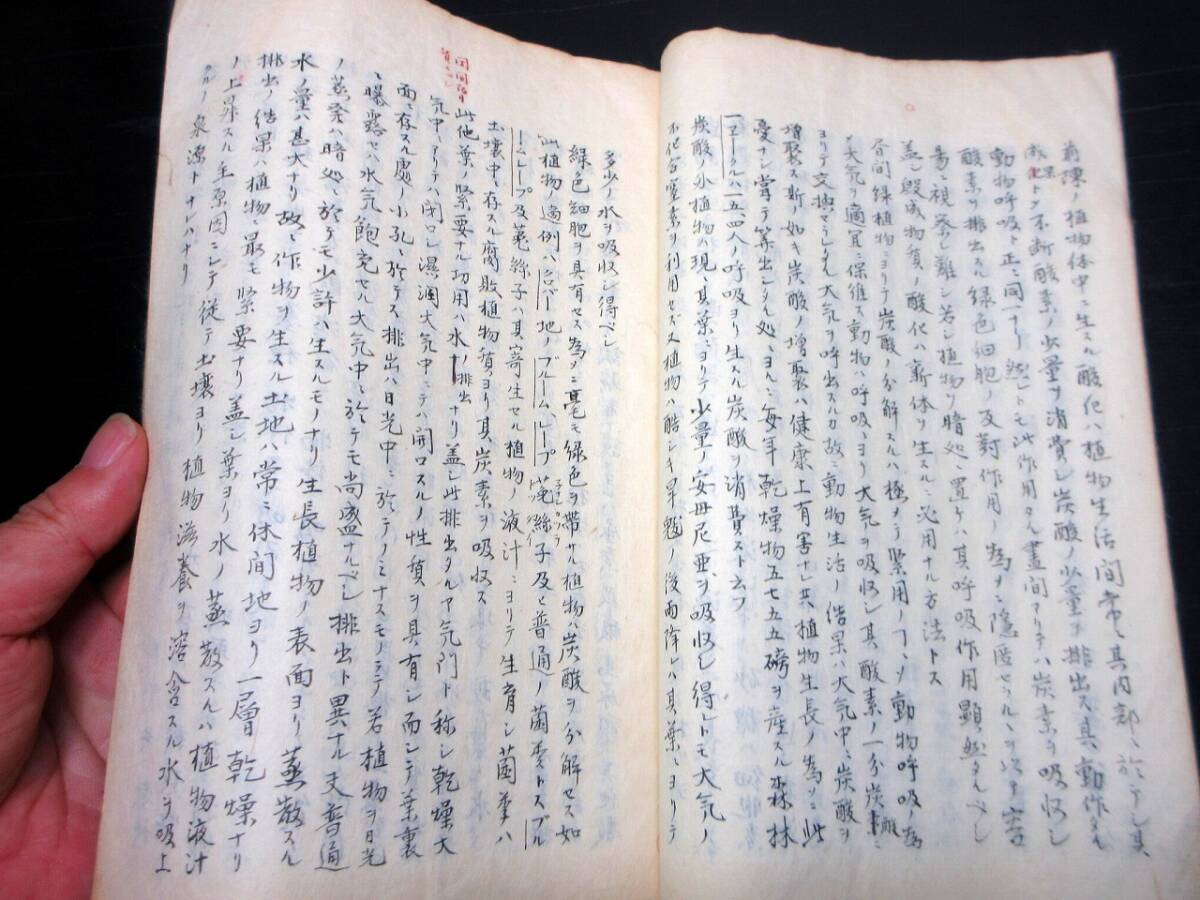 前陳ノ植物体中ニ生スル酸化ハ植物生活間常ニ其内部ニ於テシ其
成果トシ不断酸素ノ少量ヲ消費シ炭酸ノ少量ヲ排出ス其動作タル
動物呼吸ト正ニ同一ナリ然レトモ此作用タル晝間アリテハ炭素ヲ吸收シ
酸素ヲ排出スル緑色細胞ノ反對作用 為ヲニ隱匿セラルヽヲ以テ容
易ニ視察シ難シ若シ植物ヲ暗処ニ置ケハ其呼吸作用顕然タルヘシ
盖シ殷成物質ノ酸化ハ新体ヲ生スルニ必用ナル方法トス
昼間緑植物ニヨリテ炭酸ノ分解スルハ極メテ緊用ノヿニシ動物呼吸ノ為
大気ヲ適宜ニ保維ス動物ハ呼吸ニヨリ大気ヲ吸收シ其酸素ノ一分炭酸ニ
ヨリテ交換セラレタル大気ヲ呼出スルカ故ニ動物生活ノ結果ハ大気中ニ炭酸ヲ
増聚ス斯ノ如キ炭酸ノ増聚ハ健康上有害ナレ共植物生長ノ為メニ此
憂ナシ嘗テ算出シタル処ニヨルニ毎年乾燥物五七五五磅ヲ産スル森林
一エークルハ一五、四人ノ呼吸ヨリ生スル炭酸ヲ消費スト云フ
炭酸ノ外植物ハ現ニ其葉ニヨリテ少量ノ安母尼亜ヲ吸收シ得レトモ大気ノ
不化合窒素ヲ利用セズ又植物ハ酷シキ旱魃ノ後雨降レハ其葉ニヨリテ
多少ノ水ヲ吸收シ得ベシ
緑色細胞ヲ具有セス為メニ毫モ緑色ヲ帯サル植物ハ炭酸ヲ分解セス如
此植物ノ適例ハクロバー地ノブルームレープ菟絲子及ヒ普通ノ菌蕈トスブル
ームレープ及菟絲子ハ其寄生セル植物ノ液汁ニヨリテ生育シ菌蕈ハ
土壌中ニ存スル腐敗植物質ヨリ其炭素ヲ吸收ス
此他葉ノ緊要ナル功用ハ水ノ排出ナリ盖シ此排出タルヤ気門ト称シ乾燥大
気中ニアリテハ閉ロシ濕潤大気中ニテハ開ロスルノ性質ヲ具有シ而シテ葉裏
面ニ存スル處ノ小孔ニ於テス排出ハ日光中ニ於テノミナスモノニテ若植物ヲ日光
ニ曝露セハ水気飽充セル大気中ニ於テモ尚盛ナルベシ排出ト異ナル又普通
ノ蒸発ハ暗処ニ於テモ少許ハ生スルモノナリ生長植物ノ表面ヨリ蒸散スル
水ノ量ハ甚大ナリ故ニ作物ヲ生スル土地ハ常ニ休間地ヨリ一層乾燥ナリ
排出ノ結果ハ植物ニ最モ緊要ナリ盖シ葉ヨリ水ノ蒸散スルハ植物液汁
ノ上昇スル主原因ニシテ従テ土壌ヨリ植物滋養ヲ溶含スル水ヲ吸上
クルノ泉源トナレハナリ